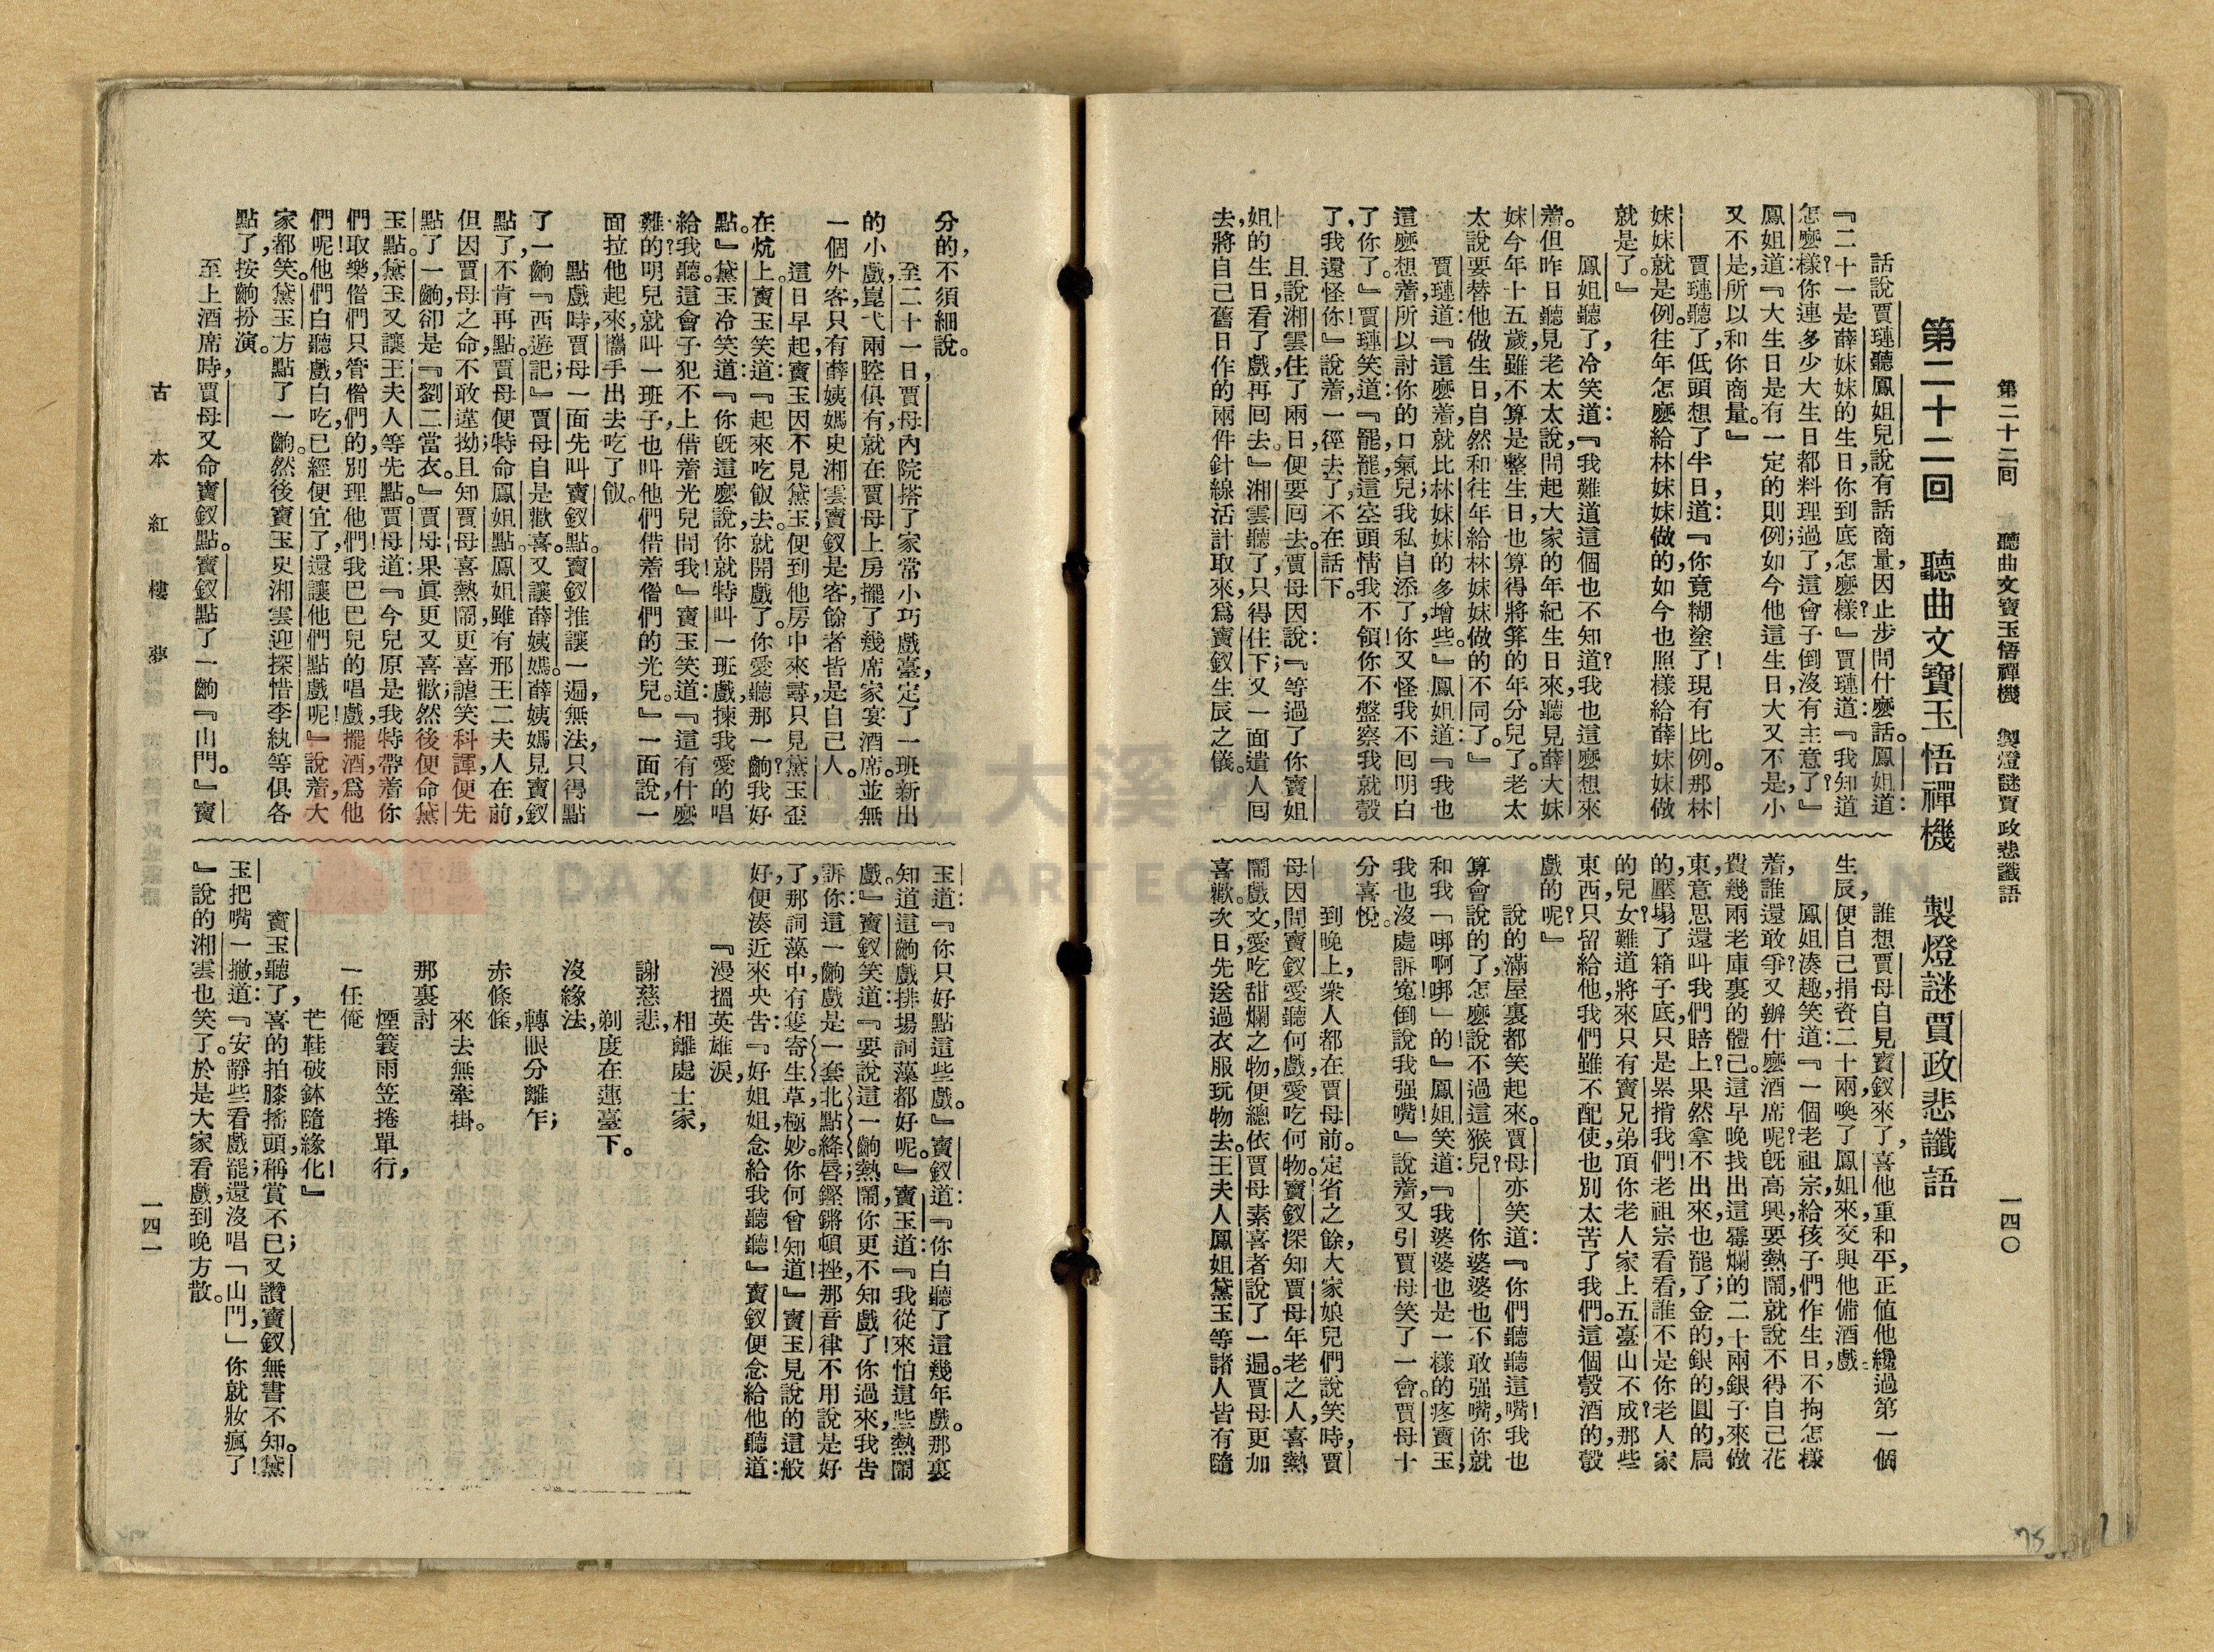 第二十二回　聽曲文寶玉悟禪機　製燈謎賈政悲讖語
一四〇
第二十二回　聽曲文寶玉悟禪機　製燈謎賈政悲讖語
話說賈璉聽鳳姐兒說有話商量，因止步問什麼話。鳳姐道：
『二十一是薛妹妹的生日，你到底怎麼樣？』賈璉道：『我知道
怎麼樣？你連多少大生日都料理過了，這會子倒沒有主意了？』
鳳姐道：『大生日是有一定的則例；如今他這生日，大又不是，小
又不是，所以和你商量。』
賈璉聽了，低頭想了半日，道：『你竟糊塗了！現有比例。那林
妹妹就是例。往年怎麼給林妹妹做的，如今也照樣給薛妹妹做
就是了。』
鳳姐聽了，冷笑道：『我難道這個也不知道？我也這麼想來
着。但昨日聽見老太太說，問起大家的年紀生日來，聽見薛大妹
妹今年十五歲，雖不算是整生日，也算得將笄的年分兒了。老太
太說要替他做生日，自然和往年給林妹妹做的不同了。』
賈璉道：『這麼着，就比林妹妹的多增些。』鳳姐道：『我也
這麼想着，所以討你的口氣兒；我私自添了，你又怪我不回明白
了你了。』賈璉笑道：『罷，罷，這空頭情我不領，你不盤察我就彀
了，我還怪你！』說着，一徑去了，不在話下。
且說湘雲住了兩日，便要回去。賈母因說：『等過了你寶姐
姐的生日，看了戲，再回去。』湘雲聽了，只得住下；又一面遣人回
去，將自己舊日作的兩件針線活計取來，爲寶釵生辰之儀。
誰想賈母自見寶釵來了，喜他重和平，正值他纔過第一個
生辰，便自己捐資二十兩，喚了鳳姐來，交與他備酒戲。
鳳姐湊趣，笑道：『一個老祖宗，給孩子們作生日，不拘怎樣
着，誰還敢爭？又辦什麼酒席呢？旣高興，要熱鬧，就說不得自己花
費幾兩老庫裏的體己。這早晚找出這霉爛的二十兩銀子來做
東，意思還叫我們賠上？果然拿不出來也罷了；金的，銀的，圓的，扁
的，壓塌了箱子底，只是累掯我們！老祖宗看看，誰不是你老人家
的兒女？難道將來只有寶兄弟頂你老人家上五臺山不成？那些
東西只留給他，我們雖不配使，也別太苦了我們。這個彀酒的，彀
戲的呢？』
說的滿屋裏都笑起來。賈母亦笑道：『你們聽聽這嘴！我也
算會說的了，怎麼說不過這猴兒？——你婆婆也不敢强嘴，你就
和我「㖿啊㖿」的！』鳳姐笑道：『我婆婆也是一樣的疼寶玉，
我也沒處訴寃，倒說我强嘴！』說着，又引賈母笑了一會。賈母十
分喜悅。
到晚上，衆人都在賈母前。定省之餘，大家娘兒們說笑時，賈
母因問寶釵愛聽何戲，愛吃何物。寶釵深知賈母年老之人，喜熱
鬧戲文，愛吃甜爛之物，便總依賈母素喜者說了一遍。賈母更加
喜歡。次日，先送過衣服玩物去。王夫人鳳姐黛玉等諸人皆有隨
分的，不須細說。
至二十一日，賈母內院搭了家常小巧戲臺，定了一班新出
的小戲，崑弋兩腔俱有，就在賈母上房擺了幾席家宴酒席。並無
一個外客，只有薛姨媽史湘雲寶釵是客，餘者皆是自己人。
這日早起，寶玉因不見黛玉，便到他房中來尋，只見黛玉歪
在炕上。寶玉笑道：『起來吃飯去。就開戲了。你愛聽那一齣？我好
點。』黛玉冷笑道：『你旣這麼說，你就特叫一班戲，揀我愛的唱
給我聽。這會子犯不上借着光兒問我！』寶玉笑道：『這有什麼
難的？明兒就叫一班子，也叫他們借着偺們的光兒。』一面說，一
面拉他起來，攜手出去吃了飯。
點戲時，賈母一面先叫寶釵點。寶釵推讓一遍，無法，只得點
了一齣『西遊記』。賈母自是歡喜。又讓薛姨媽。薛姨媽見寶釵
點了，不肯再點。賈母便特命鳳姐點。鳳姐雖有邢王二夫人在前，
但因賈母之命，不敢違拗；且知賈母喜熱鬧，更喜謔笑科諢，便先
點了一齣，卻是『劉二當衣』。賈母果眞更又喜歡，然後便命黛
玉點。黛玉又讓王夫人等先點。賈母道：『今兒原是我特帶着你
們取樂，偺們只管偺們的，別理他們！我巴巴兒的唱戲，擺酒，爲他
們呢！他們白聽戲，白吃，已經便宜了，還讓他們點戲呢！』說着，大
家都笑。黛玉方點了一齣。然後寶玉史湘雲迎探惜李紈等俱各
點了，按齣扮演。
至上酒席時，賈母又命寶釵點。寶釵點了一齣『山門。』寶
玉道：『你只好點這些戲。』寶釵道：『你白聽了這幾年戲。那裏
知道這齣戲排場詞藻都好呢。』寶玉道：『我從來怕這些熱鬧
戲。』寶釵笑道：『要說這一齣熱鬧，你更不知戲了！你過來，我告
訴你：這一齣戲是一套北點絳唇；鏗鏘頓挫，那音律不用說是好
了，那詞藻中，有隻寄生草，極妙。你何曾知道！』寶玉見說的這般
好，便湊近來央告：『好姐姐，念給我聽聽！』寶釵便念給他聽道：
『漫搵英雄淚，
相離處士家，
謝慈悲，
剃度在蓮臺下。
沒緣法，
轉眼分離乍；
赤條條，
來去無牽掛。
那裏討
煙簑雨笠捲單行，
一任俺
芒鞋破鉢隨緣化！』
寶玉聽了，喜的拍膝搖頭，稱賞不已；又讚寶釵無書不知。黛
玉把嘴一撇，道：『安靜些看戲罷；還沒唱「山門，」你就妝瘋了！
』說的湘雲也笑了。於是大家看戲，到晚方散。
古本紅樓夢
一四一
75
DAXI WOOD ART ECOMUSEUM